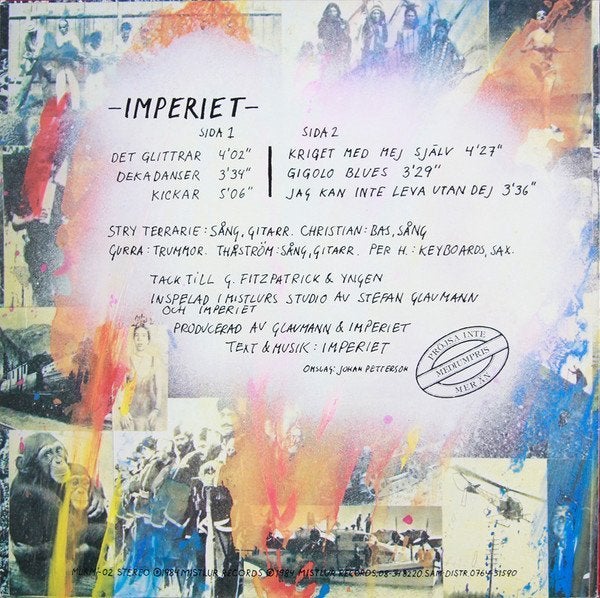 -IMPERIET-
SIDA 1
DET GLITTRAR 4'02"
DEKADANSER 3'34"
KICKAR 5'06"
SIDA 2
KRIGET MED MEJ SJÄLV 4'27"
GIGOLO BLUES 3'29"
JAG KAN INTE LEVA UTAN DEJ 3'36"
STRY TERRARIE: SÅNG, GITARR. CHRISTIAN: BAS, SÅNG
GURRA: TRUMMOR. THÅSTRÖM: SÅNG, GITARR. PER H.: KEYBOARDS, SAX.
TACK TILL G. FITZPATRICK & YNGEN
INSPELAD I MISTLURS STUDIO AV STEFAN GLAUMANN
OCH IMPERIET
PRODUCERAD AV GLAUMANN & IMPERIET
TEXT & MUSIK: IMPERIET
OMSLAG: JOHAN PETTERSON
PRÖJSA INTE
MEDIUMPRIS
MER ÄN
MLRM-02 STEREO Ⓟ 1984 MISTLUR RECORDS © 1984 MISTLUR RECORDS, 08-318220 SAM-DISTR. 0764-31590